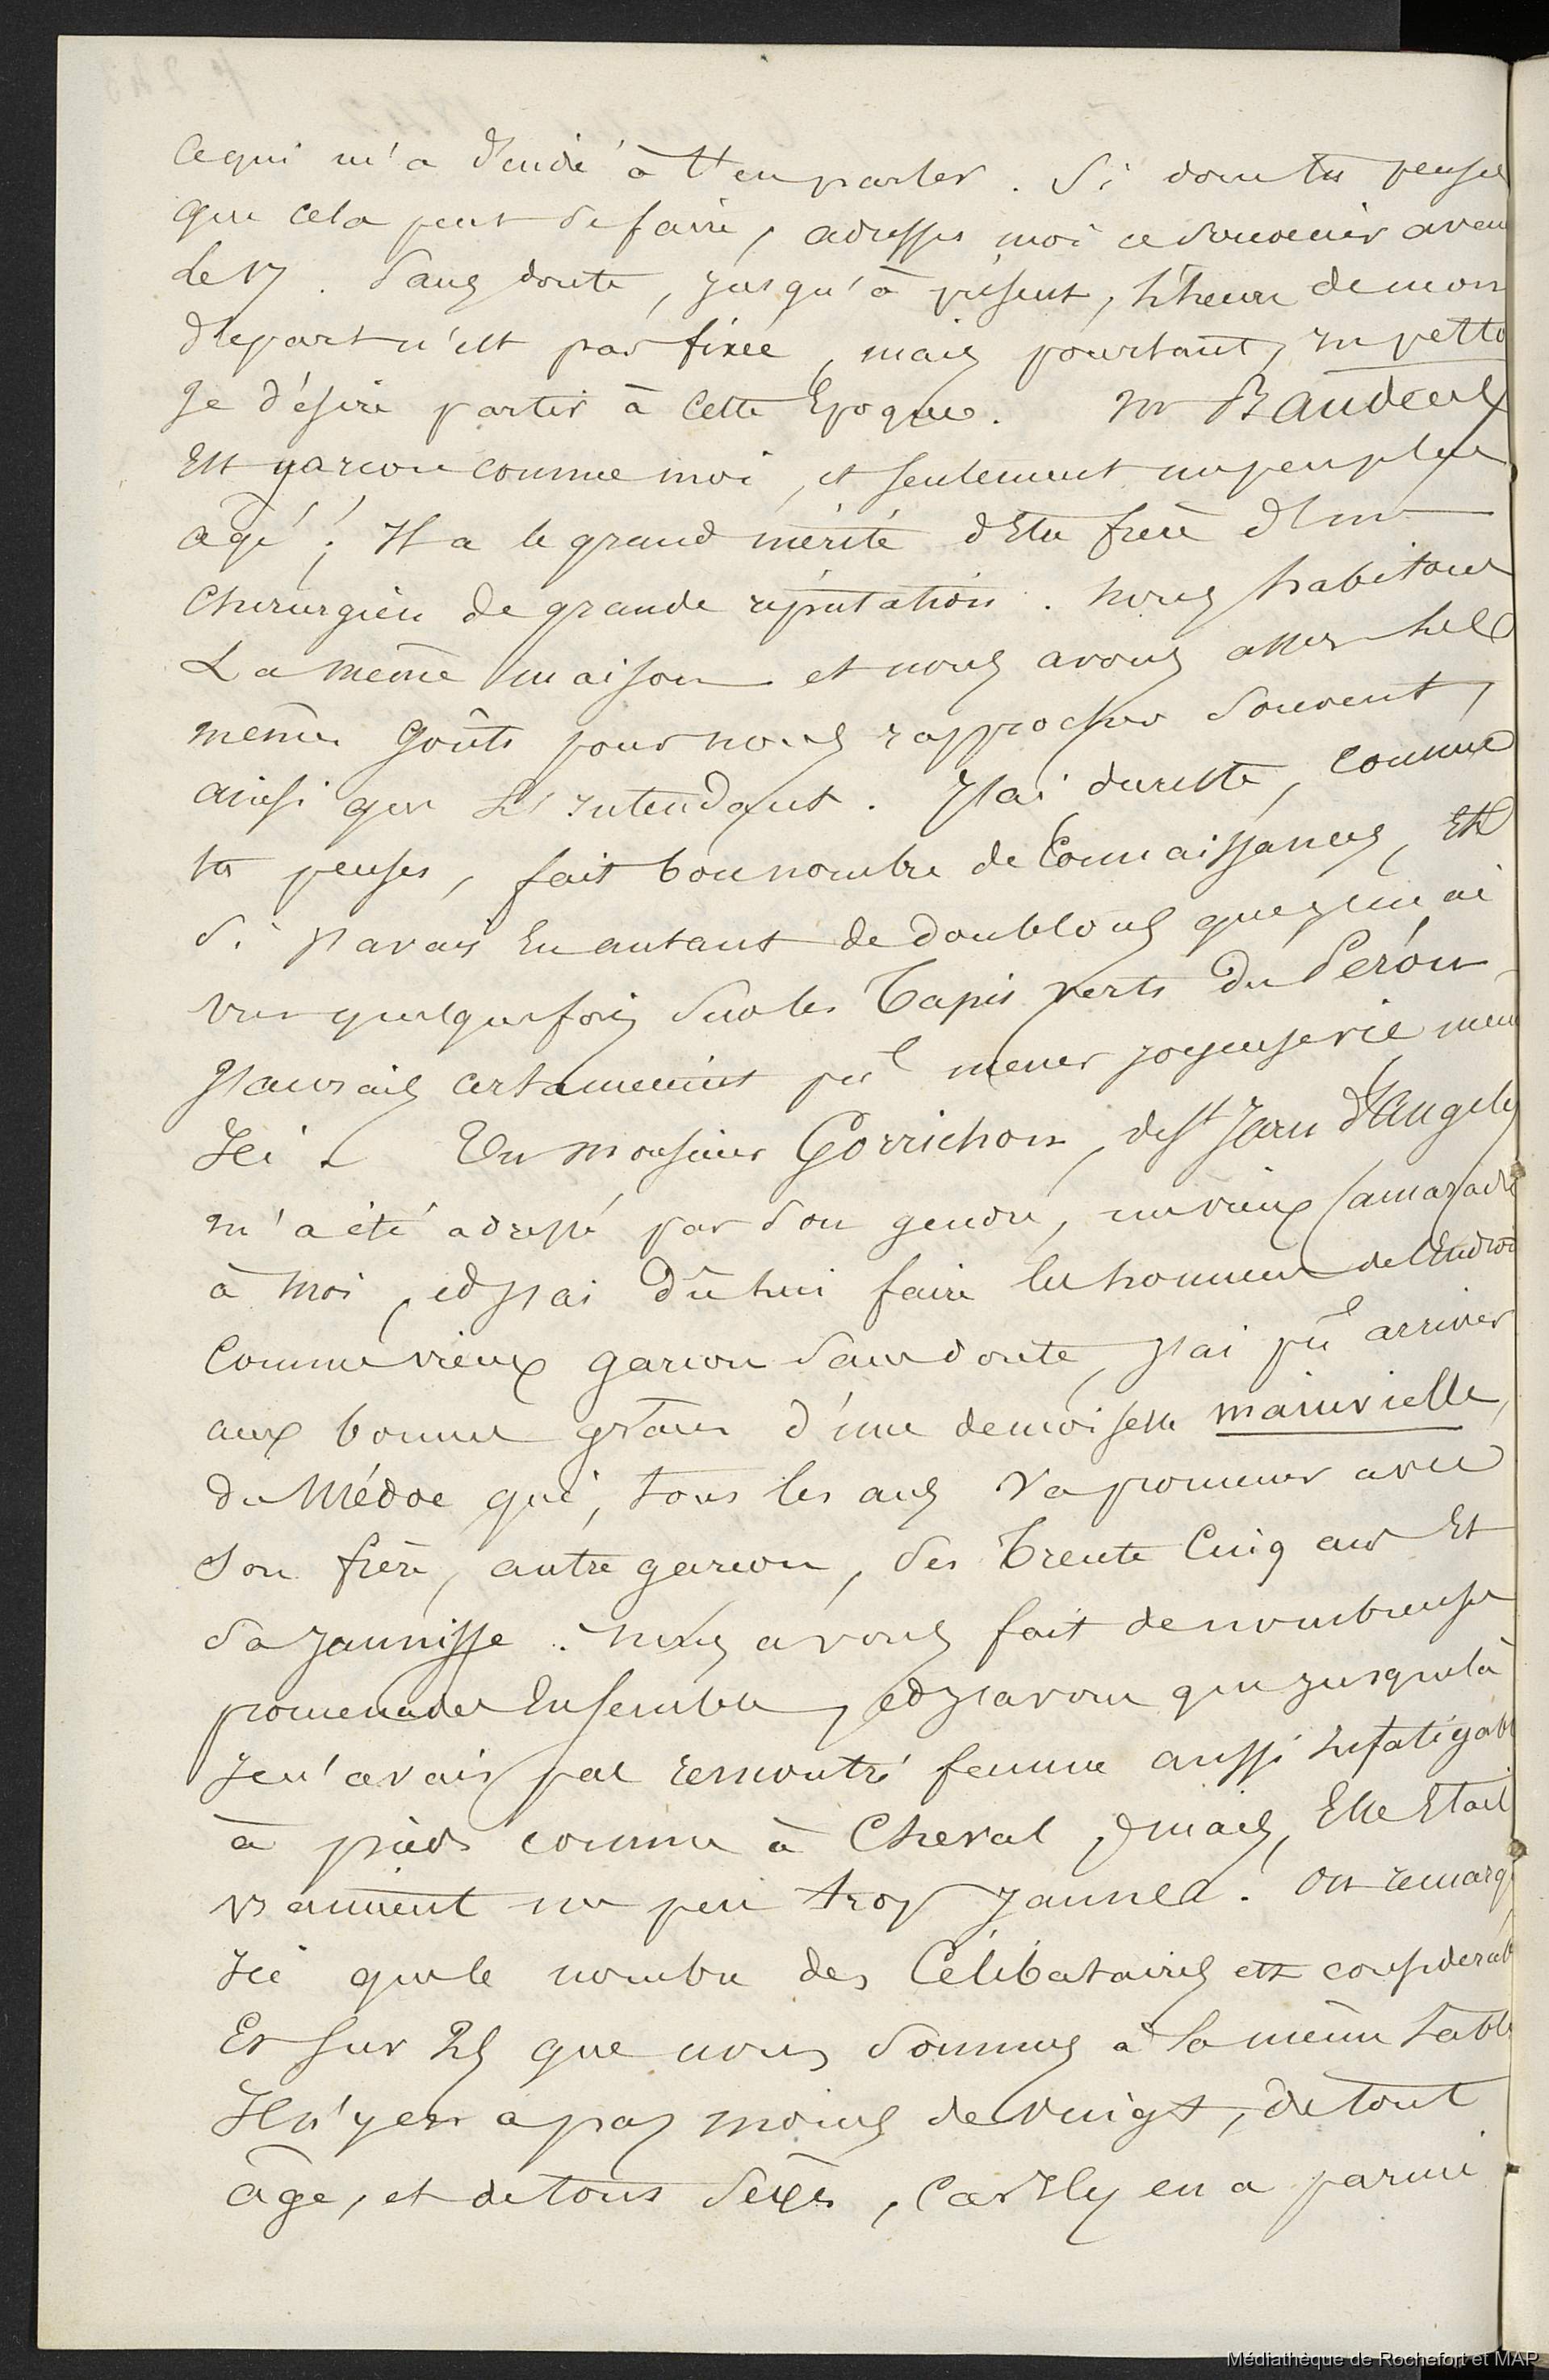 Cequi m'a décidé à t'en parler. Si donc tu penses
que cela peut se faire, adresses moi ce souvenir avan
le 17. Sans doute, jusqu'à présent, l'heure de mon
départ n'est pas fixée, mais pourtant, in petto
Je désire partir à cette Epoque. Mr Baudens
Est garçon comme moi, et seulement un peu plus
agé; Il a le grand mérite d'Etre frère d'un
Chirurgien de grande réputation. nous habitons
La même maison et nous avons assez les
mêmes goûts pour nous rapprocher souvent,
ainsi que l'Intendant. J'ai dureste, comme
tu penses, fait bon nombre de Connaissances, Et
Si j'avais En autant de doublons que j'en ai
vus quelquefois sur les Tapis verts du Pérou
J'aurais certainement pû mener joyeuse vie même
Ici. Un monsieur Gorrichon, de St Jean d'Angely
m'a été adressé par son gendre, un vieux Camarade
à moi, et j'ai dû lui faire les honneurs de l'Endroi
Comme vieux garçon sans doute, j'ai pû arriver
aux bonnes grâces d'une demoiselle mainvielle,
du Médoc qui, tous les ans va promener avec
son frère, autre garçon, ses Trente Cinq ans Et
sa jaunisse. nous avons fait de nombreuses
promenades Ensemble, et j'avoue que jusquelà
Je n'avais pas rencontré femme aussi Infatigabl
à pieds comme à Cheval, mais, Elle Etait
vraiment un peu trop jaune. On remarqu
Ici que le nombre des Célibataires est considérab
Et sur 25 que nous sommes à la même Tabl
Il n'y en a pas moins de vingt, de tout
âge, et de tous sexes, Car Il y en a parmi
Médiathèque de Rochefort et MAP